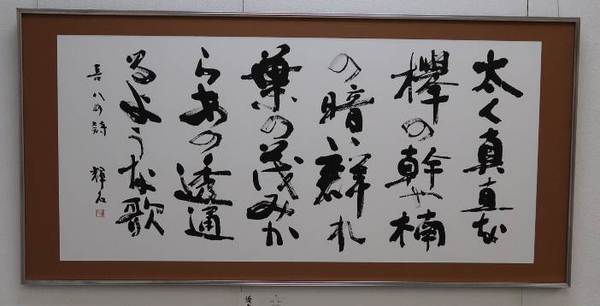 太く真直な
欅の幹や楠
の暗い群れ
葉の茂みか
らあの透通
るような歌
喜八の詩 輝石